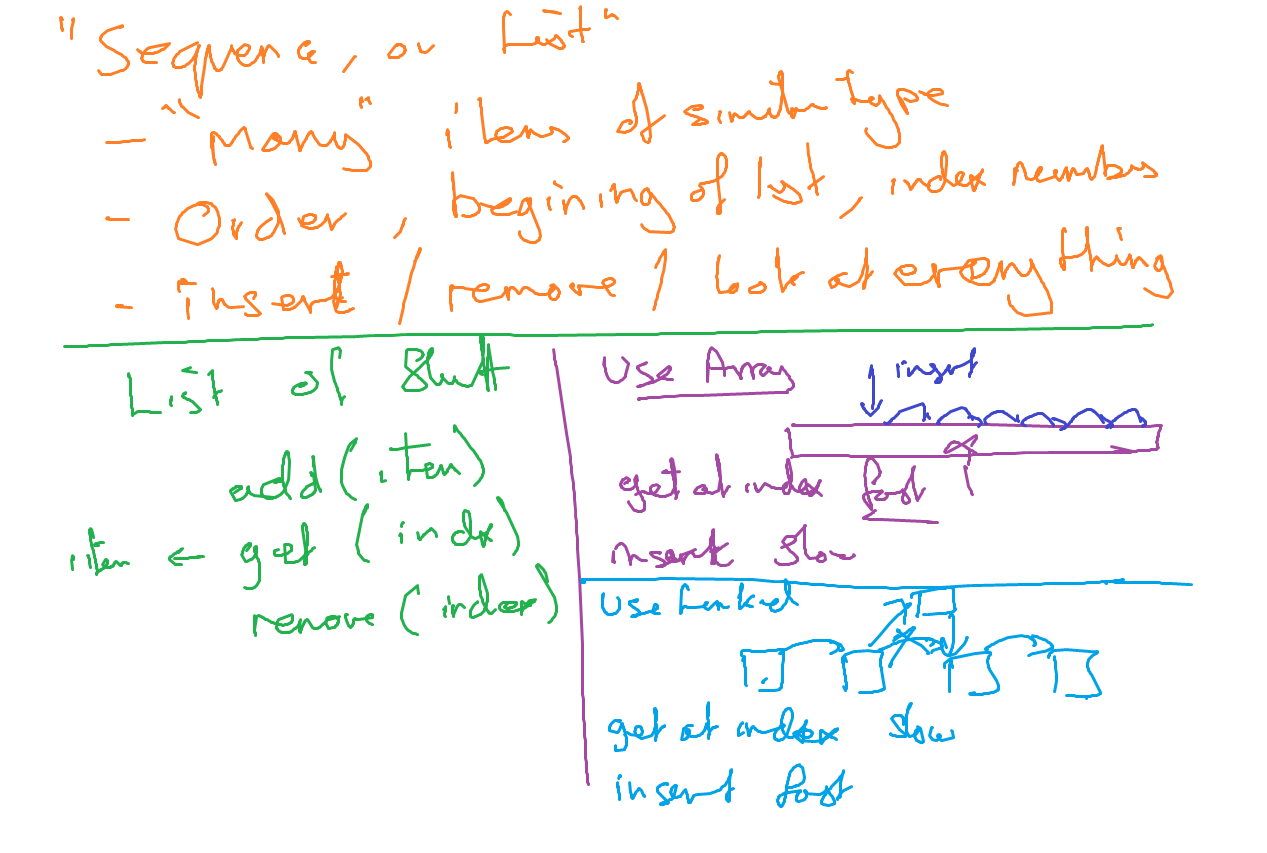 "Sequence, or List"
- "Many" items of similar type
- Order, begining of list, index number
- insert / remove / look at everything
List of Stuff
add (item)
item ← get (index)
remove (index)
Use Array
insert
get at index fast
insert slow
Use Linked
get at index slow
insert fast